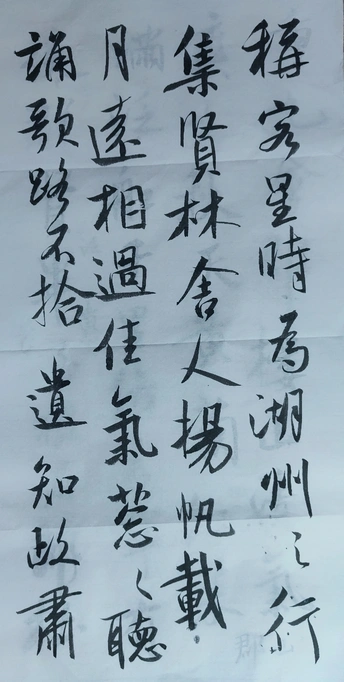 稱客星時為湖州之行
集賢林舍人揚帆載
月遠相過佳氣蔥〻聽
誦歌路不拾遺知政肅